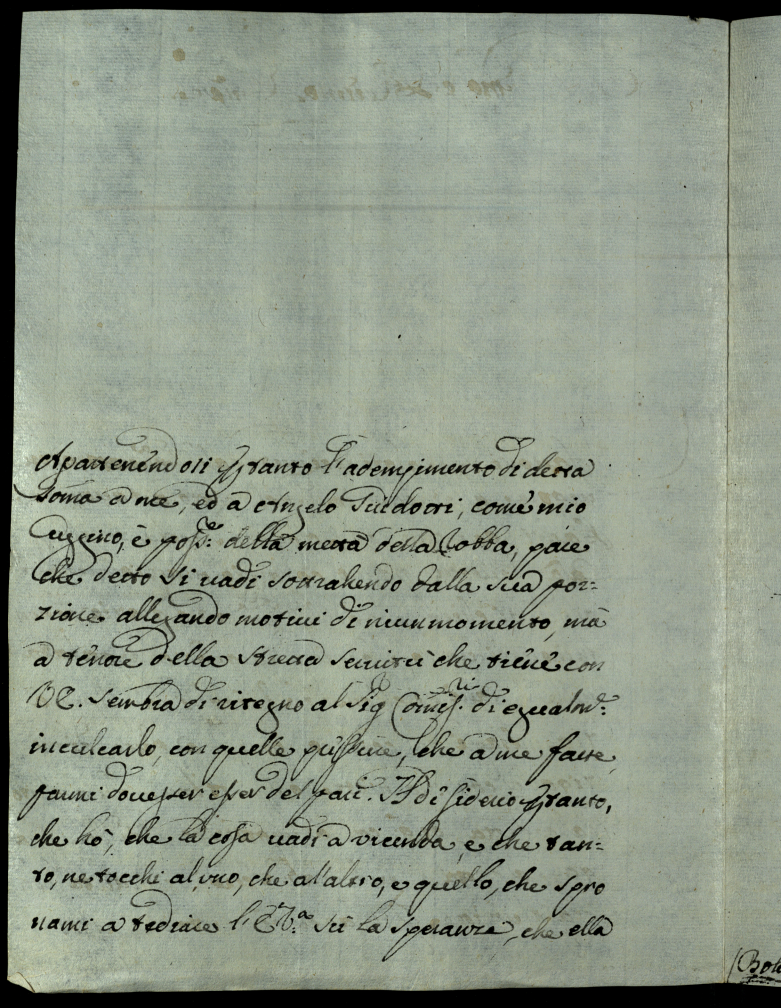 Apartenendosi per tanto l'adempimento di detta
soma a me, ed a Angelo Guidotti, come mio
cuggino, e poss.re della metta della Robba, pare
che detto si vadi sottrahendo dalla sua por=
zione allegando motivi di niun momento, mà
a tenore della stretta servitù che tiene con
VE. sembra di ritegno al Sig Comiss.rio di egualm.te
inculcarlo, con quelle pressure, che a me fatte,
parmi dovesser esser del pari. Il desiderio per tanto,
che hò, che la cosa vadi a vicenda, e che tan=
to, ne tocchi al uno, che al'altro, e quello, che spro
nami a tediare l'E.V.a sù la speranza, che ella